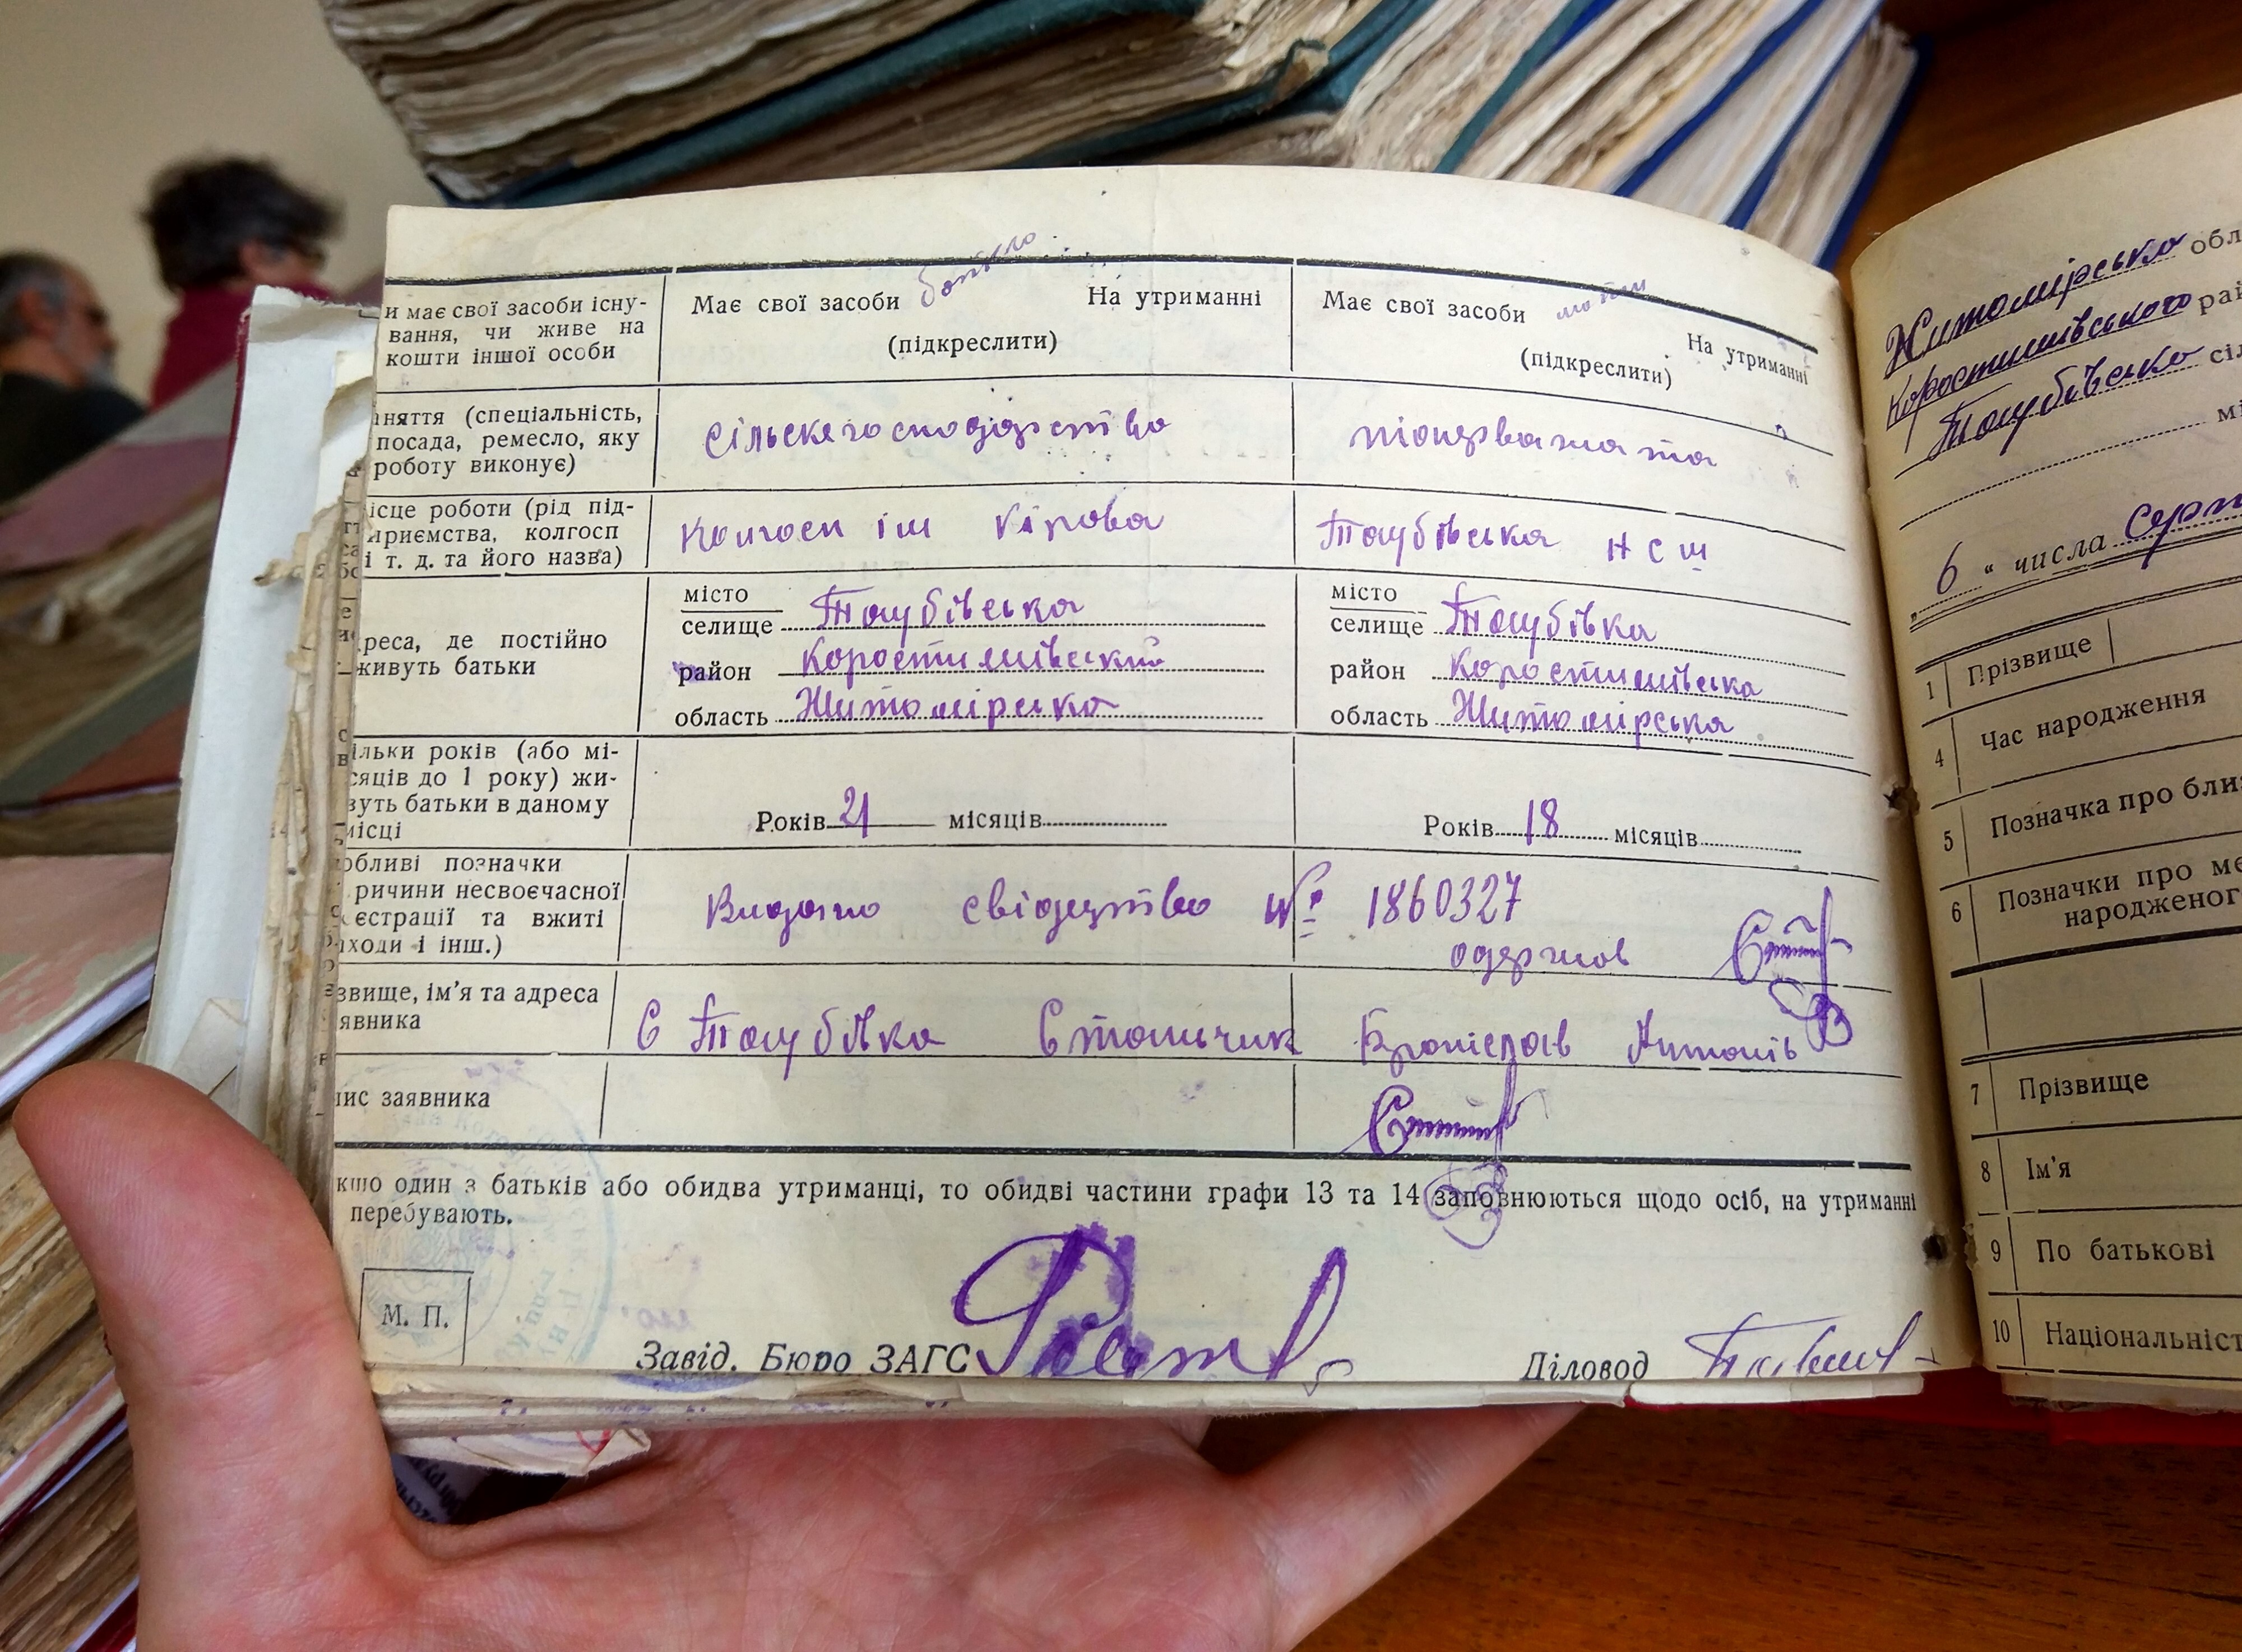 батько
мати
и має свої засоби існу-
вання, чи живе на
кошти іншої особи
Має свої засоби
На утриманні
(підкреслити)
Має свої засоби
На утриманні
(підкреслити)
няття (спеціальність,
посада, ремесло, яку
роботу виконує)
сільскегосподарство
піонервожата
ісце роботи (рід під-
приємства, колгосп
і т. д. та його назва)
колгосп ім Кірова
Голубівська НСШ
реса, де постійно
живуть батьки
місто
селище Голубівська
район Коростишівський
область Житомірська
місто
селище Голубівка
район Коростишівська
область Житомірська
ільки років (або мі-
сяців до 1 року) жи-
вуть батьки в даному
місці
Років 21 місяців
Років 18 місяців
обливі позначки
ричини несвоєчасної
еєстрації та вжиті
аходи і інш.)
Видано свідецтво № 1860327
одержав
звище, ім’я та адреса
явника
С Голубівка Стальчик Броніслав Антонів
пис заявника
кщо один з батьків або обидва утриманці, то обидві частини графи 13 та 14 заповнюються щодо осіб, на утриманні
перебувають.
М. П.
Завід. Бюро ЗАГС
Діловод
Житомірська обл
Коростишівського рай
Голубівська сіл
мі
„ 6 “ числа Серп
1 Прізвище
4 Час народження
5 Позначка про близ
6 Позначки про ме
народженог
7 Прізвище
8 Ім’я
9 По батькові
10 Національніст